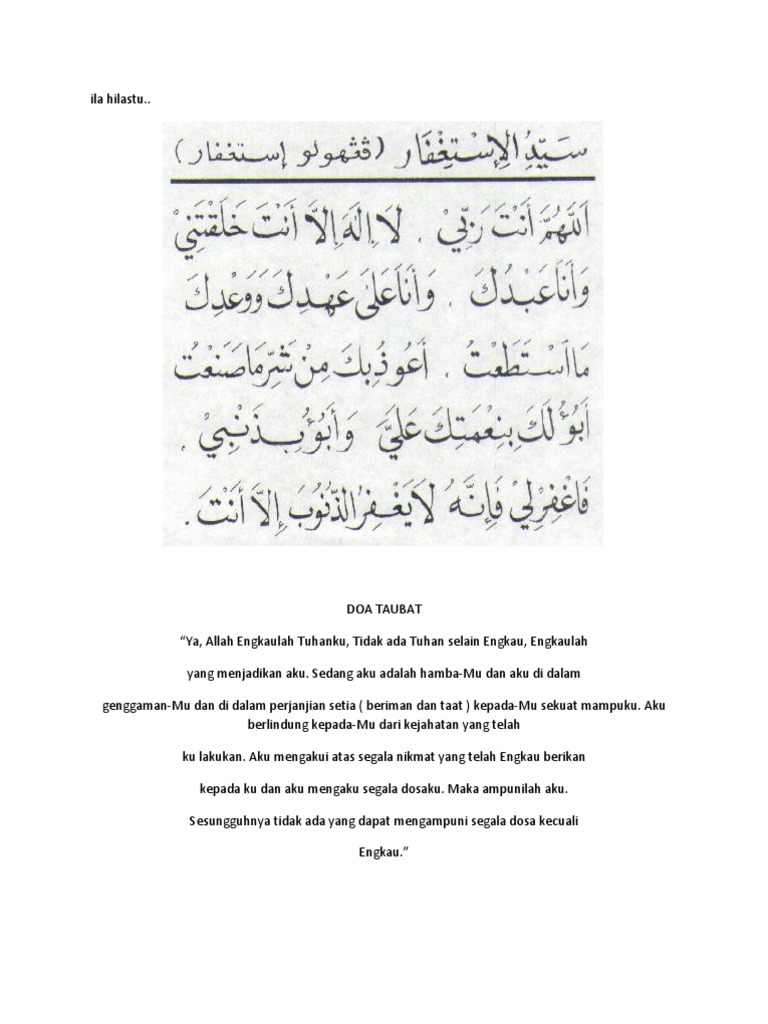 ila hilastu..
سَيِّدُ الْإِسْتِغْفَار (ڤڠهولو إستغفار)
اَللّٰهُمَّ أَنْتَ رَبِّيْ ، لَا إِلٰهَ إِلَّا أَنْتَ خَلَقْتَنِيْ
وَأَنَا عَبْدُكَ ، وَأَنَا عَلَى عَهْدِكَ وَوَعْدِكَ
مَا اسْتَطَعْتُ ، أَعُوْذُ بِكَ مِنْ شَرِّ مَا صَنَعْتُ
أَبُوْءُ لَكَ بِنِعْمَتِكَ عَلَيَّ وَأَبُوْءُ بِذَنْبِيْ ،
فَاغْفِرْ لِيْ فَإِنَّهُ لَا يَغْفِرُ الذُّنُوْبَ إِلَّا أَنْتَ .
DOA TAUBAT
“Ya, Allah Engkaulah Tuhanku, Tidak ada Tuhan selain Engkau, Engkaulah
yang menjadikan aku. Sedang aku adalah hamba-Mu dan aku di dalam
genggaman-Mu dan di dalam perjanjian setia ( beriman dan taat ) kepada-Mu sekuat mampuku. Aku
berlindung kepada-Mu dari kejahatan yang telah
ku lakukan. Aku mengakui atas segala nikmat yang telah Engkau berikan
kepada ku dan aku mengaku segala dosaku. Maka ampunilah aku.
Sesungguhnya tidak ada yang dapat mengampuni segala dosa kecuali
Engkau.”